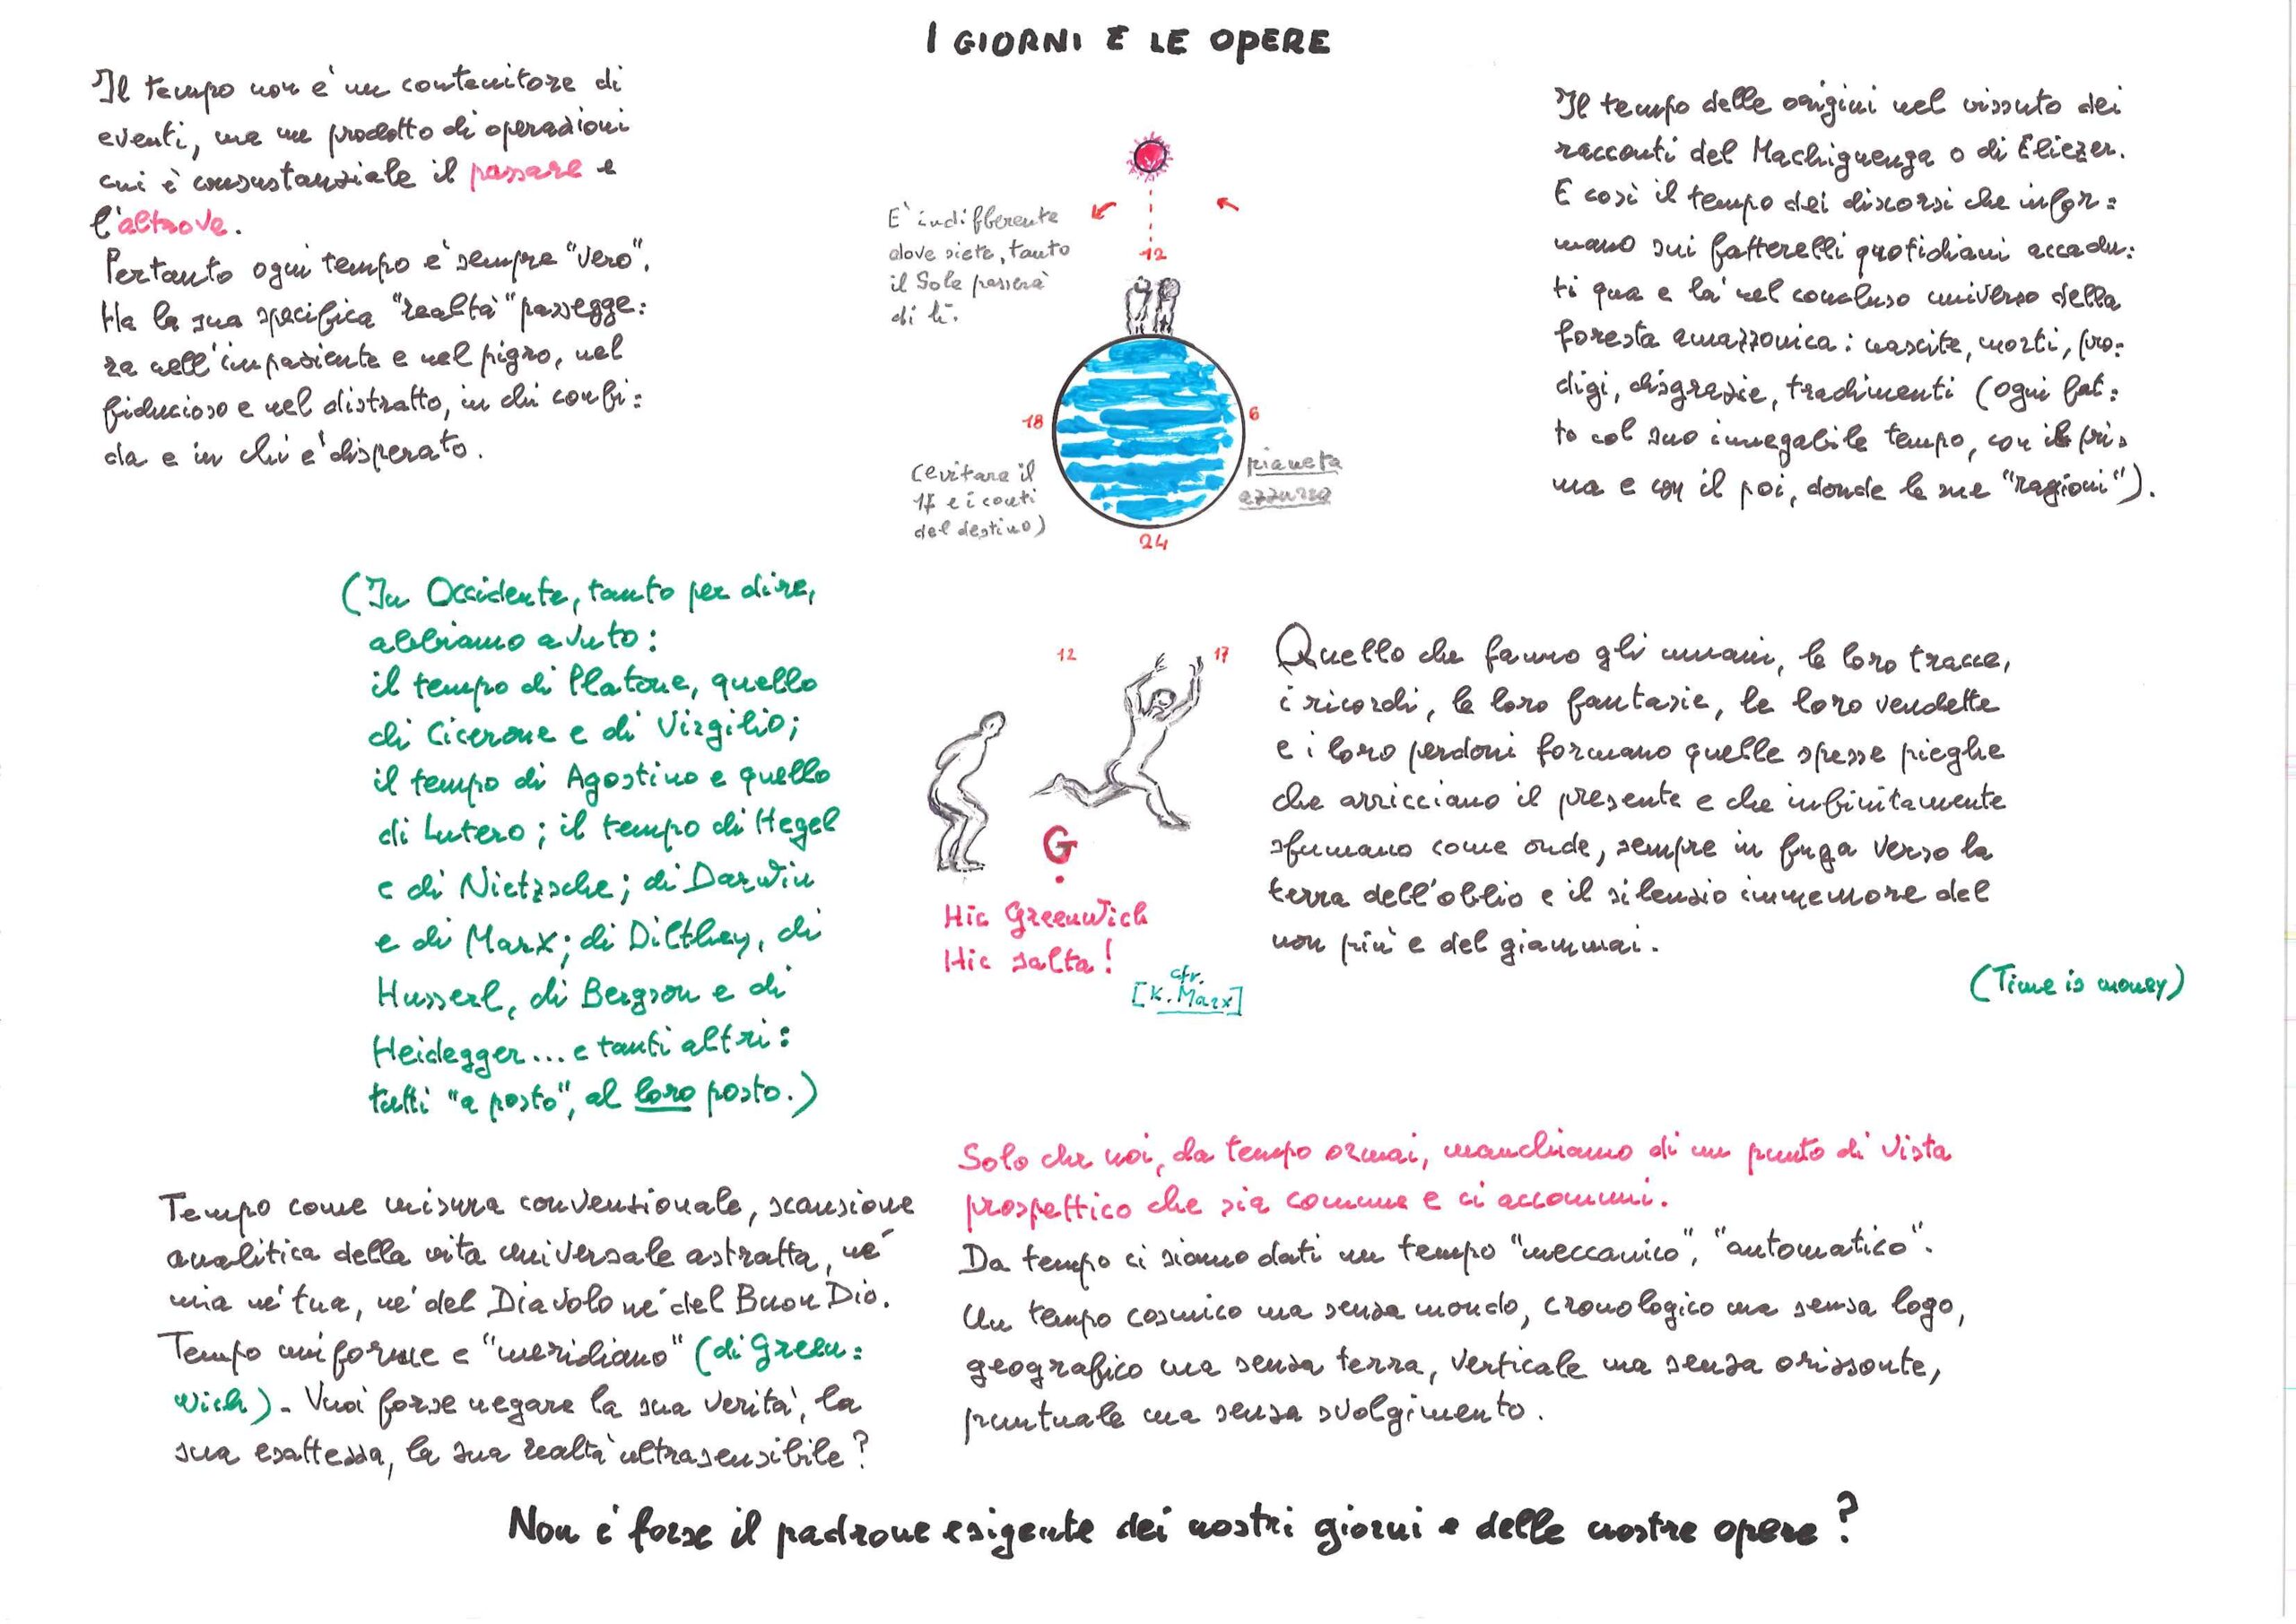 I GIORNI E LE OPERE
Il tempo non è un contenitore di
eventi, ma un prodotto di operazioni
cui è consustanziale il passare e
l'altrove.
Pertanto ogni tempo è sempre "vero".
Ha la sua specifica "realtà" passegge=
ra nell'impaziente e nel pigro, nel
fiducioso e nel distratto, in chi confi=
da e in chi è disperato.
E' indifferente
dove siete, tanto
il Sole passerà
di lì.
12
18
6
24
(evitare il
17 e i conti
del destino)
pianeta
azzurro
Il tempo delle origini nel vissuto dei
racconti del Machiguenga o di Eliezer.
E così il tempo dei discorsi che infor=
mano sui fatterelli quotidiani accadu=
ti qua e là nel concluso universo della
foresta amazzonica: nascite, morti, pro=
digi, disgrazie, tradimenti (ogni fat=
to col suo innegabile tempo, con il pri=
ma e con il poi, donde le sue "ragioni").
(In Occidente, tanto per dire,
abbiamo avuto:
il tempo di Platone, quello
di Cicerone e di Virgilio;
il tempo di Agostino e quello
di Lutero; il tempo di Hegel
e di Nietzsche; di Darwin
e di Marx; di Dilthey, di
Husserl, di Bergson e di
Heidegger... e tanti altri:
tutti "a posto", al loro posto.)
12
17
G
Hic Greenwich
Hic salta!
cfr.
[K. Marx]
Quello che fanno gli umani, le loro tracce,
i ricordi, le loro fantasie, le loro vendette
e i loro perdoni formano quelle spesse pieghe
che arricciano il presente e che infinitamente
sfumano come onde, sempre in fuga verso la
terra dell'oblio e il silenzio immemore del
non più e del giammai.
(Time is money)
Tempo come misura convenzionale, scansione
analitica della vita universale astratta, né
mia né tua, né del Diavolo né del Buon Dio.
Tempo uniforme e "meridiano" (di Green=
wich). Vuoi forse negare la sua verità, la
sua esattezza, la sua realtà ultrasensibile?
Solo che noi, da tempo ormai, manchiamo di un punto di vista
prospettico che sia comune e ci accomuni.
Da tempo ci siamo dati un tempo "meccanico", "automatico".
Un tempo cosmico ma senza mondo, cronologico ma senza logo,
geografico ma senza terra, verticale ma senza orizzonte,
puntuale ma senza svolgimento.
Non è forse il padrone esigente dei nostri giorni e delle nostre opere?